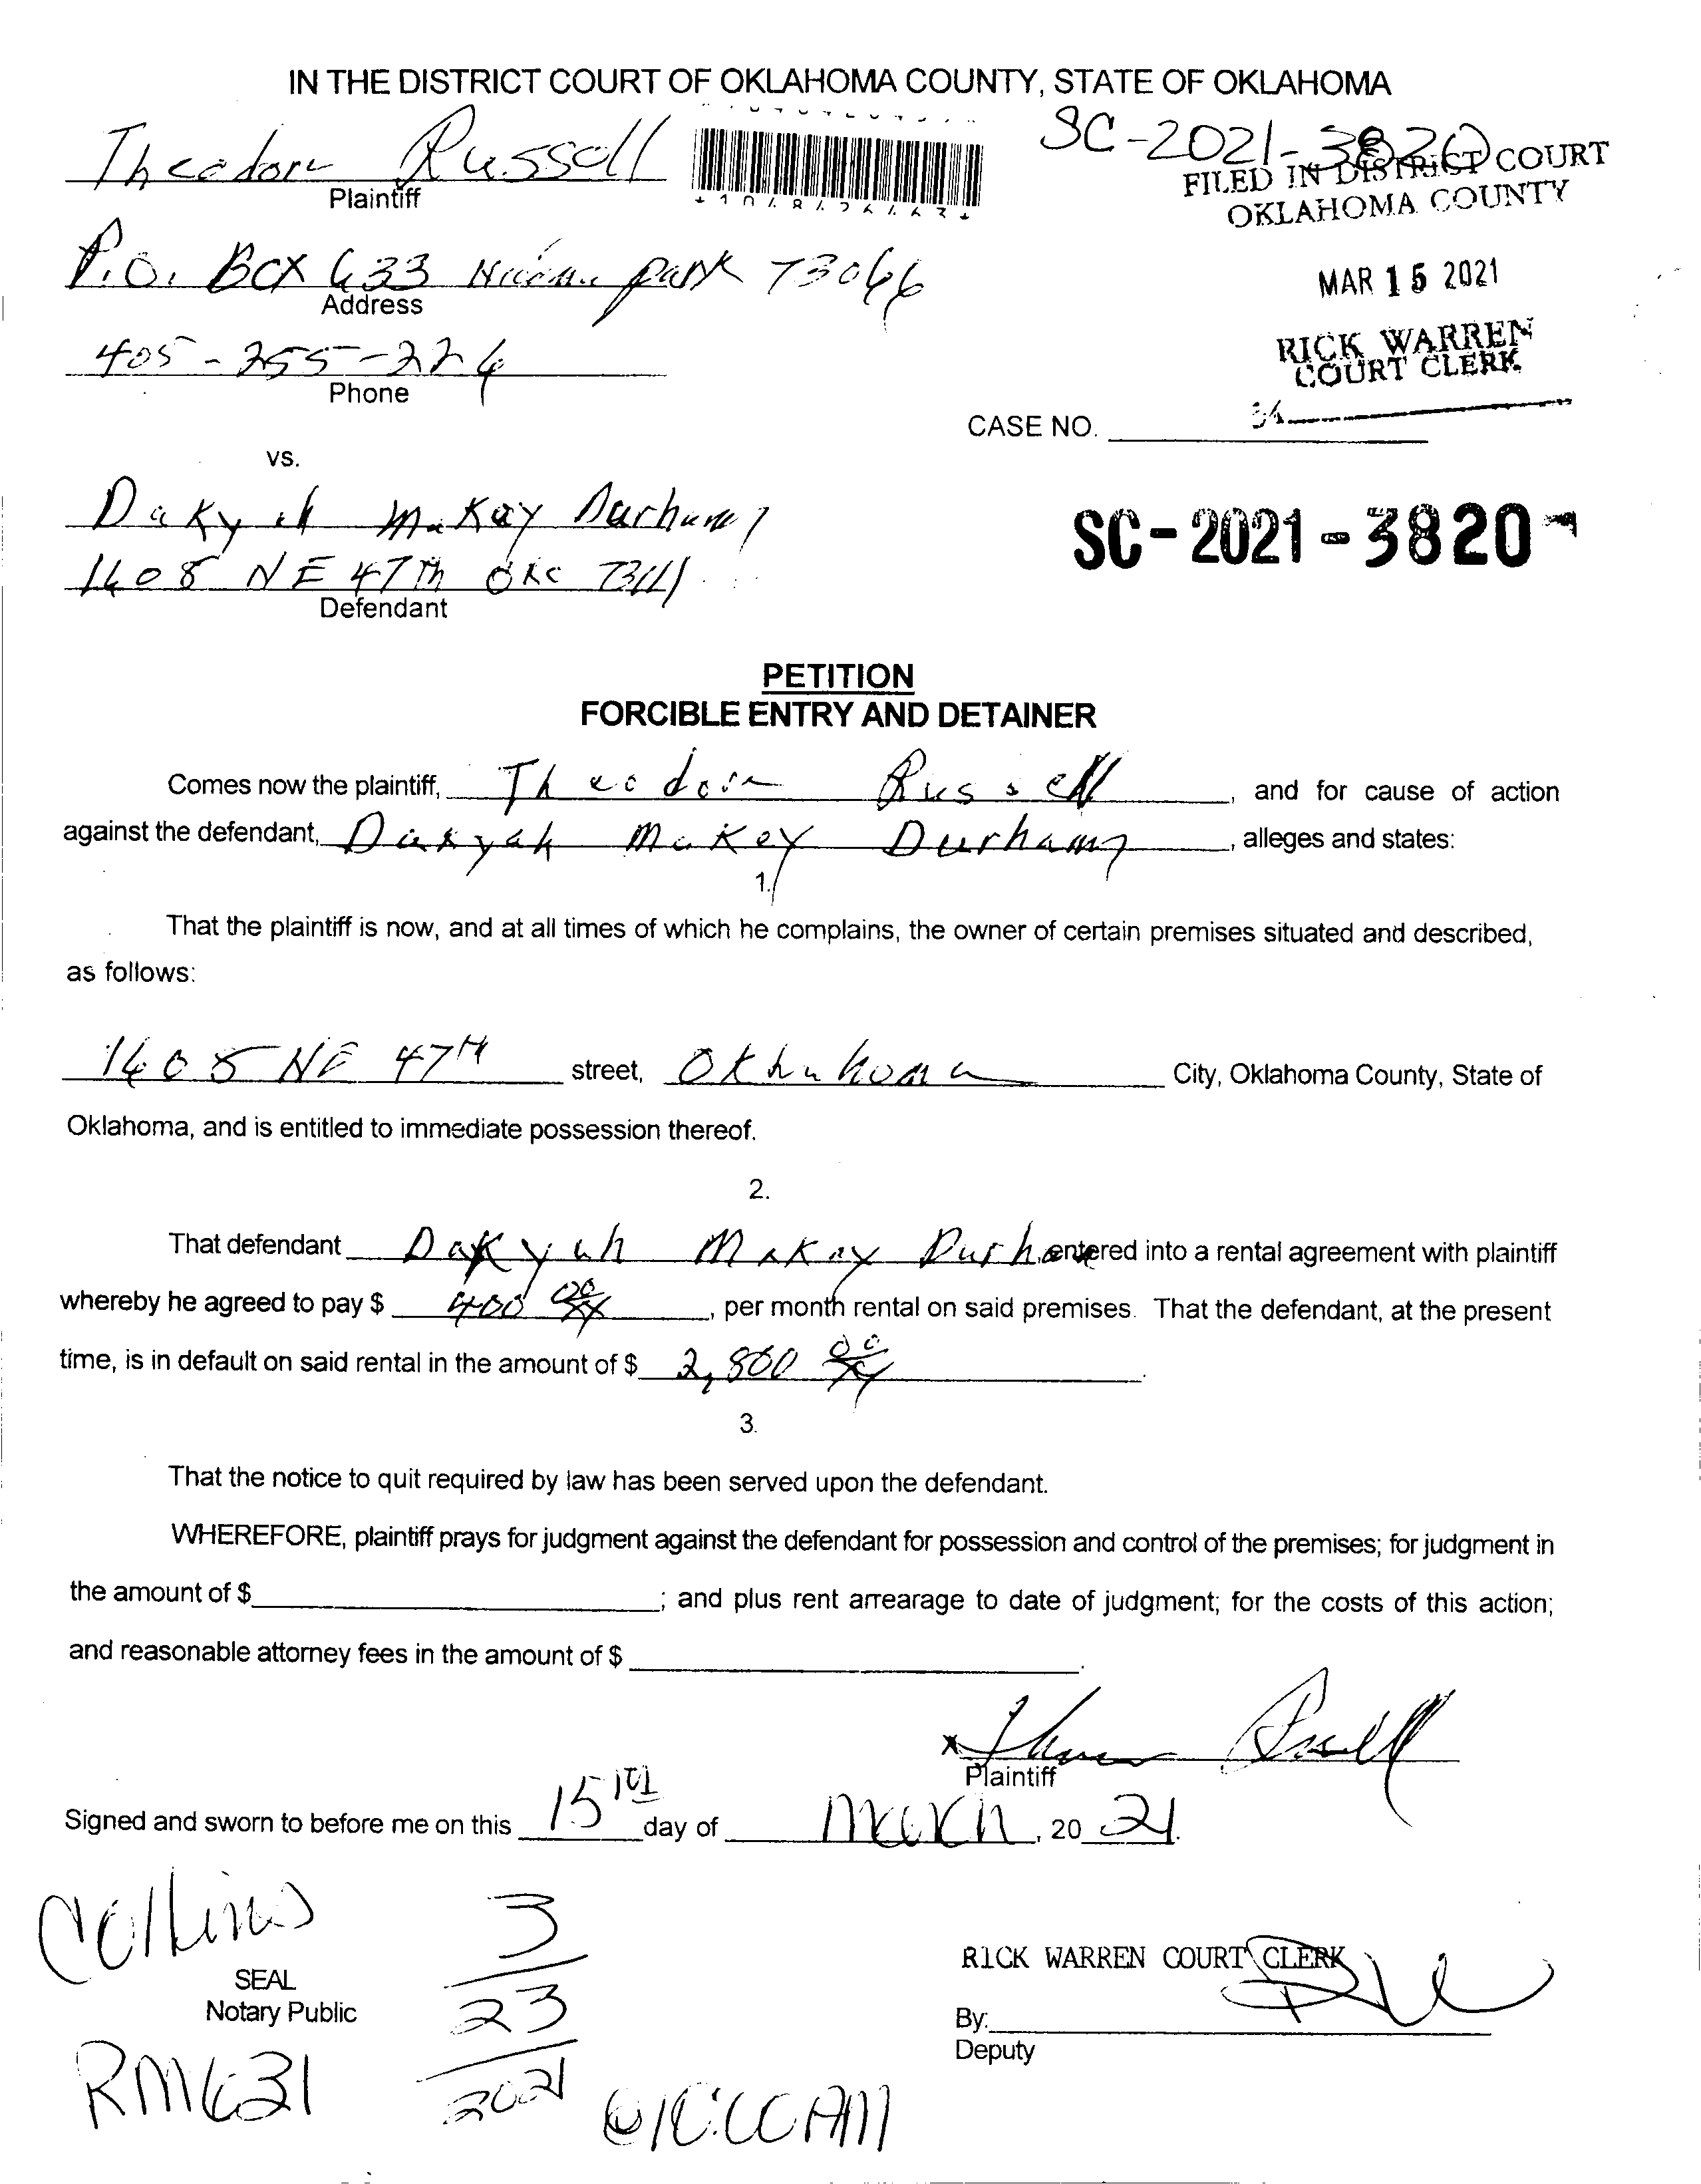 IN THE DISTRICT COURT OF OKLAHOMA COUNTY, STATE OF OKLAHOMA
Theodore Russell
Plaintiff
SC-2021-3820
FILED IN DISTRICT COURT
OKLAHOMA COUNTY
P.O. Box 633 park 73066
Address
MAR 15 2021
RICK WARREN
COURT CLERK
405-255-22
Phone
CASE NO.
vs.
Dakyah Makay Durham
SC-2021-3820
1608 NE 47Th OKC 73111
Defendant
PETITION
FORCIBLE ENTRY AND DETAINER
Comes now the plaintiff, Theodore Russell, and for cause of action
against the defendant, Dakyah Makay Durham, alleges and states:
1.
That the plaintiff is now, and at all times of which he complains, the owner of certain premises situated and described,
as follows:
1608 NE 47TH street, Oklahoma City, Oklahoma County, State of
Oklahoma, and is entitled to immediate possession thereof.
2.
That defendant Dakyah Makay Durham entered into a rental agreement with plaintiff
whereby he agreed to pay $ 400 00/xx, per month rental on said premises. That the defendant, at the present
time, is in default on said rental in the amount of $ 2,800 00/xx.
3.
That the notice to quit required by law has been served upon the defendant.
WHEREFORE, plaintiff prays for judgment against the defendant for possession and control of the premises; for judgment in
the amount of $ ; and plus rent arrearage to date of judgment; for the costs of this action;
and reasonable attorney fees in the amount of $ .
x Russell
Plaintiff
Signed and sworn to before me on this 15th day of March, 20 21.
Collins
SEAL
Notary Public
3
23
2021
RICK WARREN COURT CLERK
By:
Deputy
RM631
@10:00AM